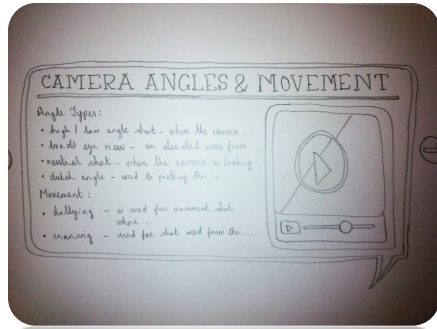 CAMERA ANGLES & MOVEMENT
Angle Types:
• high / low angle shot - when the camera ...
• birds eye view - an elevated view from ...
• neutral shot - when the camera is looking ...
• dutch angle - used to portray the ...
Movement:
• dollying - is used for movement shot
where ...
• craning - used for shot used from the ...